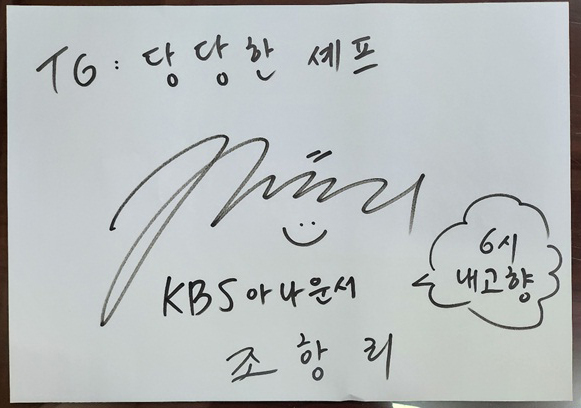 TG: 당당한 셰프
6시
내고향
KBS 아나운서
조항리